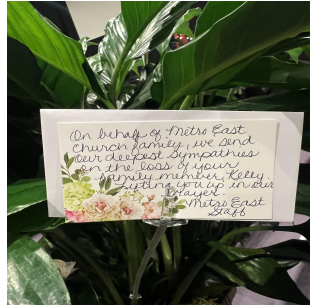 On behalf of Metro East
Church family, we send
our deepest sympathies
on the loss of your
family member, Kelly.
Lifting you up in our
prayer.
Metro East
Staff